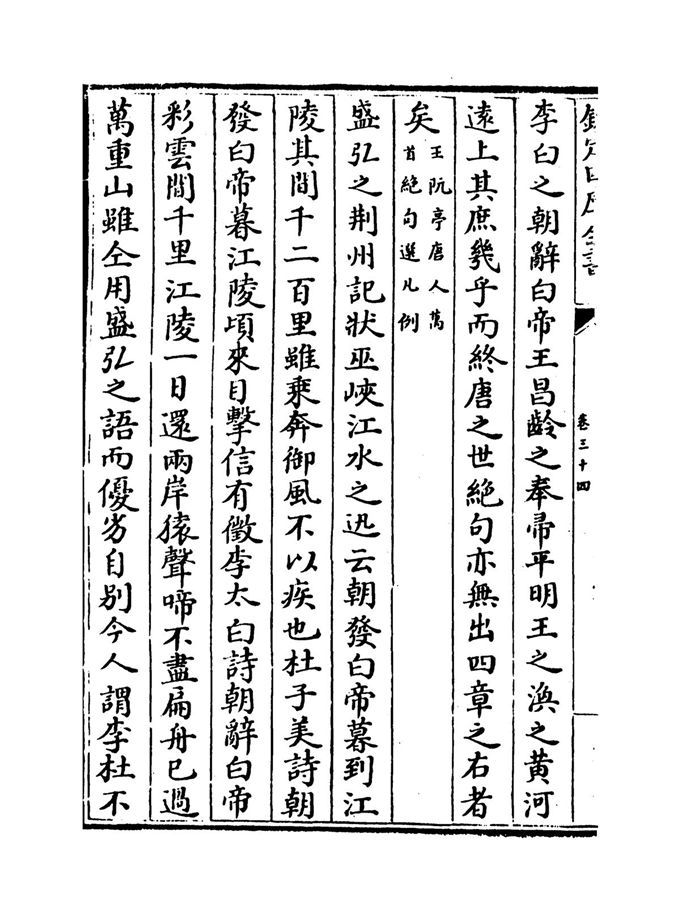 欽定四庫全書
卷三十四
李白之朝辭白帝王昌齡之奉帚平明王之渙之黄河
逺上其庶幾乎而終唐之世絶句亦無出四章之右者
矣王阮亭唐人萬
首絶句選凡例
盛弘之荆州記狀巫峽江水之迅云朝發白帝暮到江
陵其間千二百里雖乗奔御風不以疾也杜子美詩朝
發白帝暮江陵頃來目擊信有徵李太白詩朝辭白帝
彩雲間千里江陵一日還兩岸猿聲啼不盡扁舟已過
萬重山雖仝用盛弘之語而優劣自别今人謂李杜不